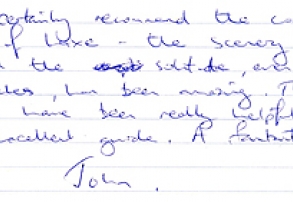 certainly recommend the co
of Luxe - the scenery
the solitude, even
has been amazing. T
have been really helpful
excellent guide. A fantast
John.